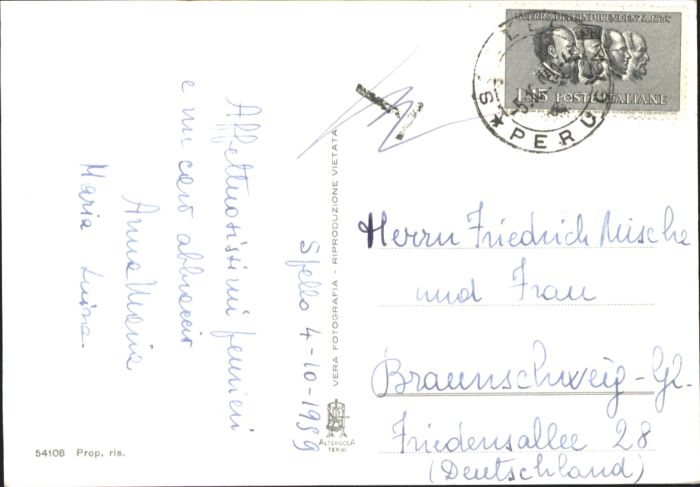 Spello 4-10-1959
Affettuosissimi pensieri
e un caro abbraccio
AnnaMaria
Maria Luisa.
VERA FOTOGRAFIA - RIPRODUZIONE VIETATA
ALTEROCCA
TERNI
54108 Prop. ris.
GUERRA DELL'INDIPENDENZA, 1859
L.15 POSTE ITALIANE
PERUG
Herrn Friedrich Mische
und Frau
Braunschweig-Gl.
Friedensallee 28
(Deutschland)